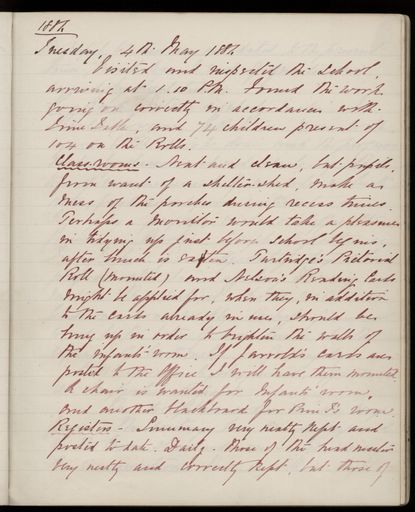 1886
Tuesday 4th May 1886
Visited and inspected the School,
arriving at 1.10 P.M. Found the work
going on correctly in accordance with
Time Table, and 74 children present of
104 on the Rolls.
Classrooms. Neat and clean, but pupils,
from want of a shelter-shed, make a
mess of the porches during recess times.
Perhaps a monitor would take a pleasure
in tidying up just before School begins,
after lunch is eaten. Partridge's Pictorial
Roll (mounted) and Nelson's Reading Cards
might be applied for, when they, in addition
to the cards already in use, should be
hung up in order to brighten the walls of
the infants' room. If Jarrold's cards are
posted to the Office I will have them mounted.
A chair is wanted for Infants' room,
and another blackboard for room.
Registers - Summary very neatly kept and
posted to date. Daily. Those of the head master
very neatly and correctly kept, but those of